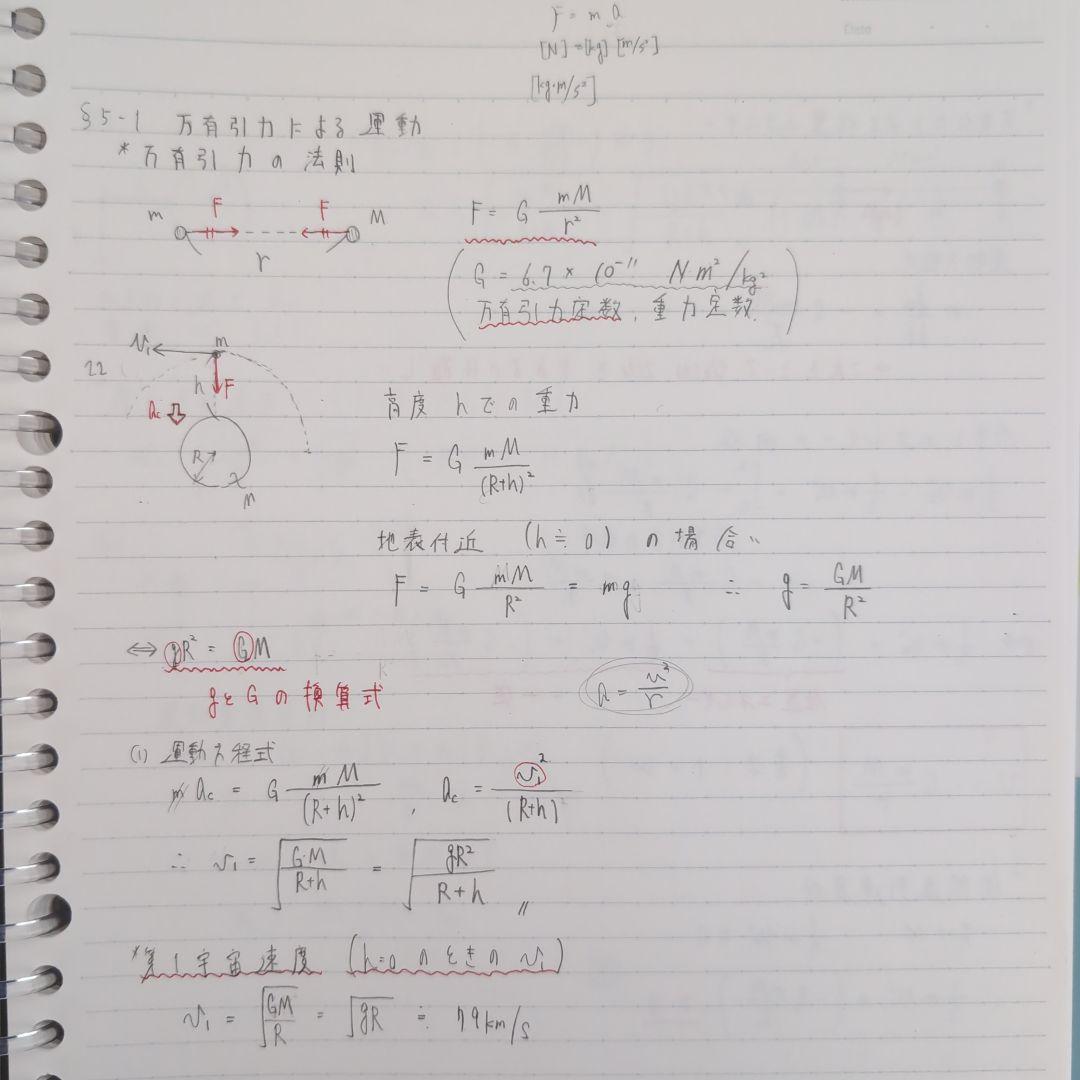 F = m a
[N] = [kg] [m/s²]
[kg·m/s²]
Date
§5-1 万有引力による運動
* 万有引力の法則
m F F M
r
F = G mM/r²
(G = 6.7 × 10⁻¹¹ N·m²/kg²
万有引力定数, 重力定数)
22
v₁ m
h F
a_c
R
M
高度 h での重力
F = G mM/(R+h)²
地表付近 (h≒0) の場合、
F = G mM/R² = mg ∴ g = GM/R²
⇔ gR² = GM
gとGの換算式
a = v²/r
(1) 運動方程式
m a_c = G mM/(R+h)² , a_c = v₁²/(R+h)
∴ v₁ = √(GM/(R+h)) = √(gR²/(R+h)) 〃
*第1宇宙速度 (h=0のときのv₁)
v₁ = √(GM/R) = √gR ≒ 7.9km/s